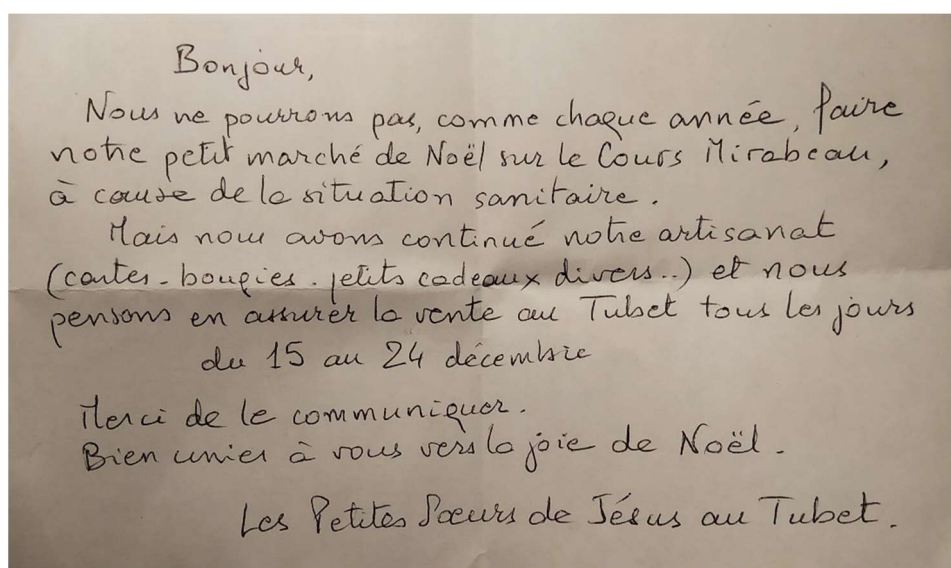 Bonjour,
Nous ne pourrons pas, comme chaque année, faire
notre petit marché de Noël sur le Cours Mirabeau,
à cause de la situation sanitaire.
Mais nous avons continué notre artisanat
(cartes - bougies - petits cadeaux divers..) et nous
pensons en assurer la vente au Tubet tous les jours
du 15 au 24 décembre
Merci de le communiquer.
Bien unies à vous vers la joie de Noël.
Les Petites Sœurs de Jésus au Tubet.